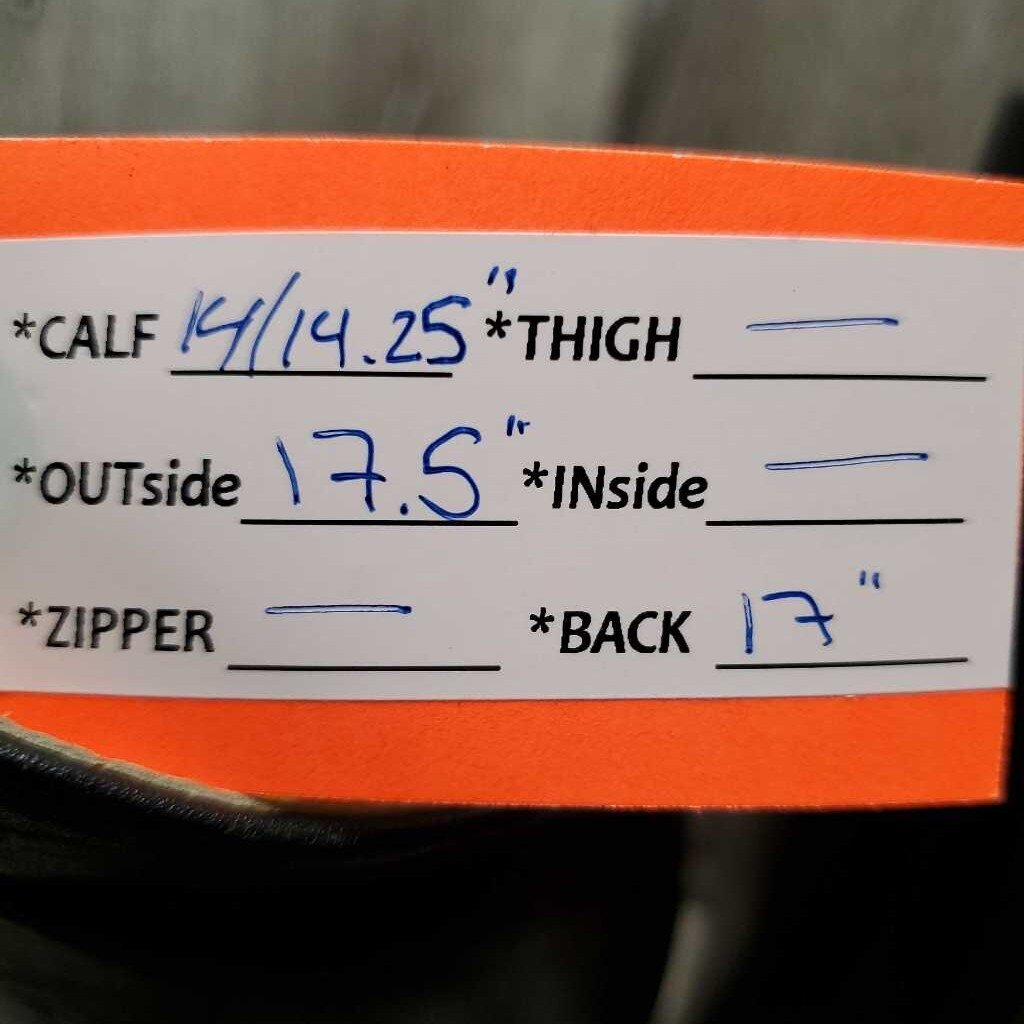 *CALF 14/14.25" *THIGH —
*OUTside 17.5" *INside —
*ZIPPER — *BACK 17"